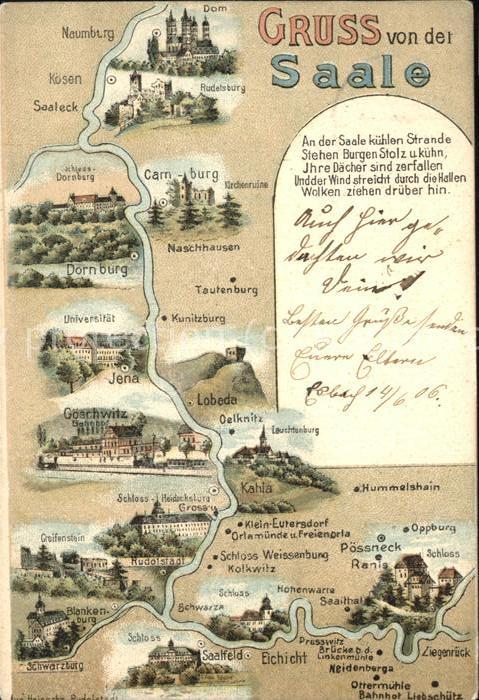 GRUSS von der
Saale
An der Saale kühlen Strande
Stehen Burgen Stolz u. kühn,
Jhre Dächer sind zerfallen
Und der Wind streicht durch die Hallen
Wolken ziehen drüber hin.
Auch hier ge-
dachten wir
Dein
Besten Grüße senden
Euere Eltern
14/6 06.
Dom
Naumburg
Kösen
Rudelsburg
Saaleck
Schloss-
Dornburg
Cam-burg
Kirchenruine
Naschhausen
Dornburg
Tautenburg
Universität
Kunitzburg
Jena
Lobeda
Göschwitz
Bahnhof
Oelknitz
Leuchtenburg
Kahla
Hummelshain
Schloss-Heidecksburg
Gross
Klein-Eutersdorf
Orlamünde u. Freienorla
Oppburg
Greifenstein
Rudolstadt
Schloss Weissenburg
Kolkwitz
Pössneck
Schloss
Ranis
Blanken-
burg
Schwarza
Schloss
Hohenwarte
Saalthal
Schwarzburg
Schloss
Saalfeld
Eichicht
Presswitz
Brücke b. d.
Linkenmühle
Ziegenrück
Neidenberga
Ottermühle
Bahnhof Liebschütz